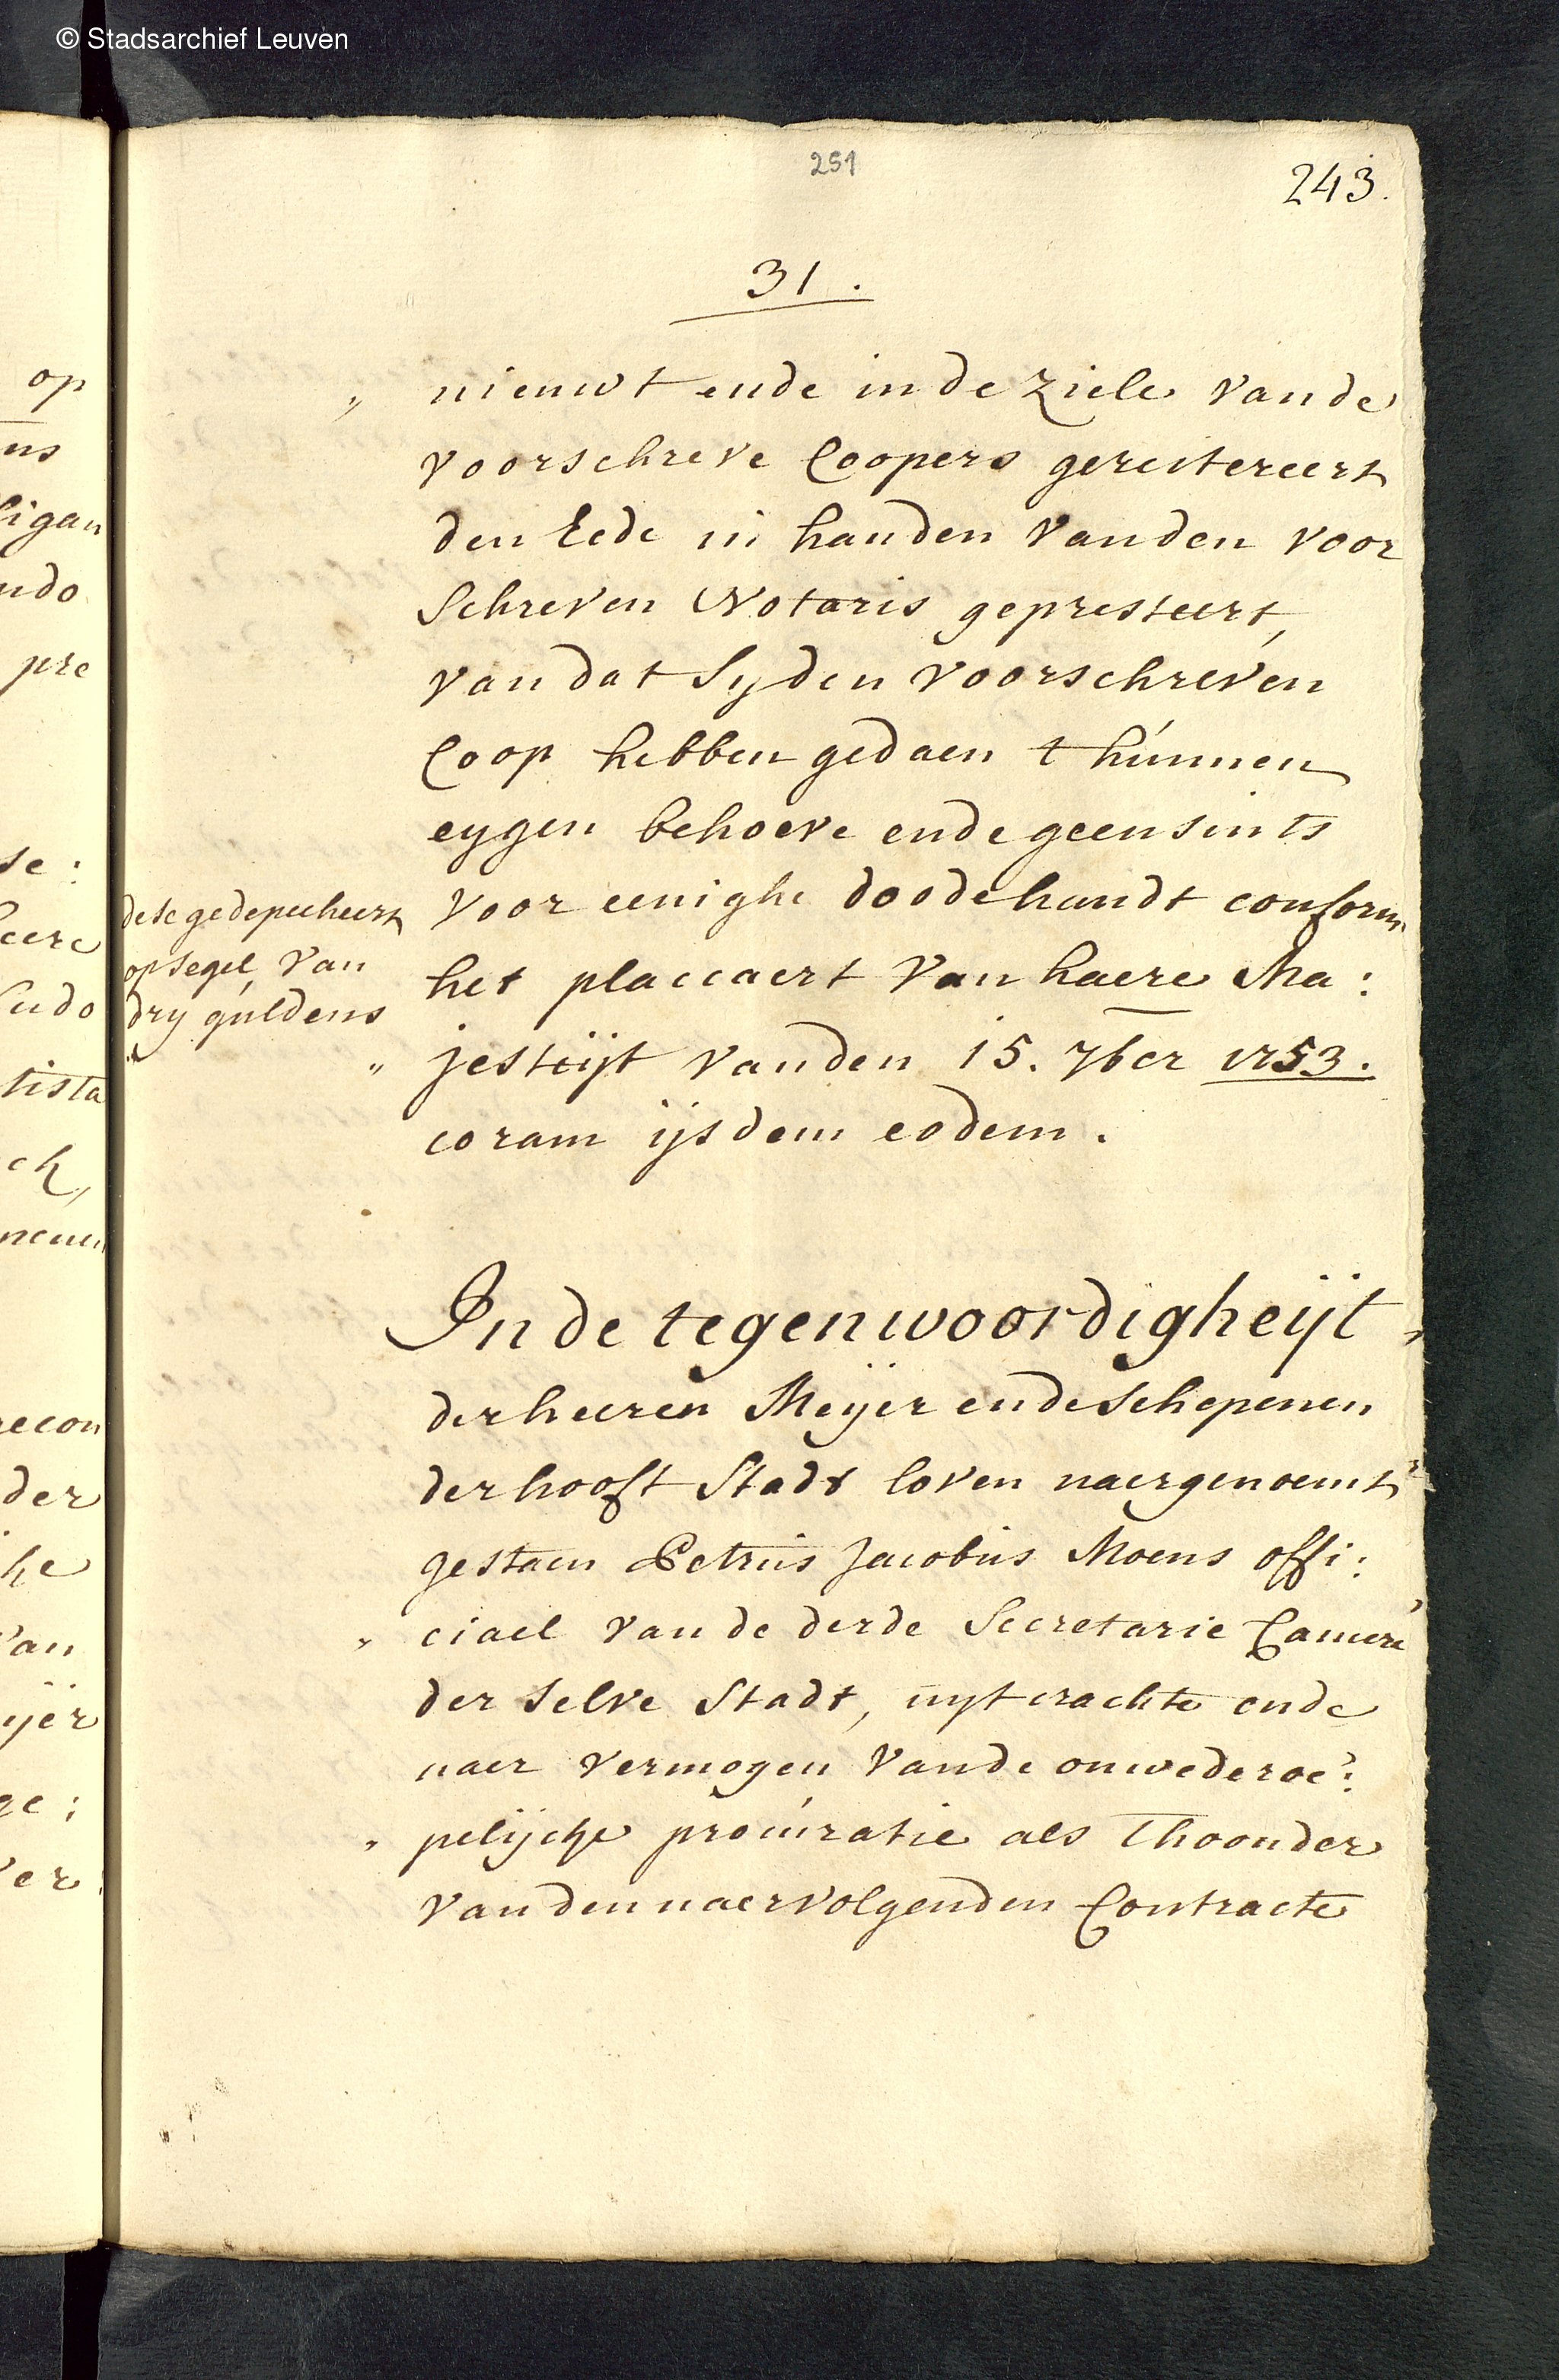 © Stadsarchief Leuven
251
243.
31.
„ nieuwt ende in de ziele van de
voorschreve Coopers gereitereert
den Eede in handen van den voor
Schreven Notaris gepresteert,
van dat Sy den voorschreven
Coop hebben gedaen t hunnen
eygen behoeve ende geensints
voor eenighe doode handt conform
het placcaert van haere Ma:
„ jesteijt van den 15. 7ber 1753.
coram ijsdem eodem.
dese gedepecheert
op segel van
dry guldens
In de tegenwoordigheijt
der heeren Meijer ende Schepenen
der hooft Stadt loven naergenoemt
gestaen Petrus Jacobus Moens offi:
„ ciael van de derde Secretarie Camere
der selve Stadt, uyt crachte ende
naer vermogen van de onwederoe:
„ pelijcke procuratie als Thoonder
van den naervolgenden Contracte
op
ns
ligan
ndo
pre
se:
eere
endo
tista
ck,
nemen
recon
der
he
van
ijer
ge:
ver